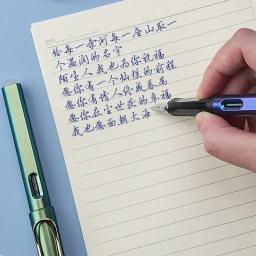 给每一条河每一座山取一
个温暖的名字
陌生人我也为你祝福
愿你有一个灿烂的前程
愿你有情人终成眷属
愿你在尘世获的幸福
我也愿面朝大海